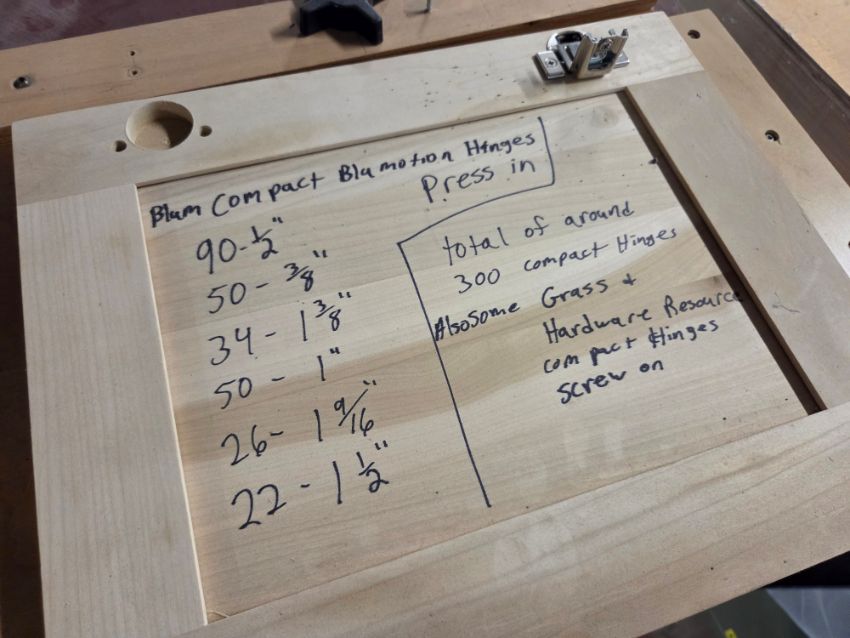 Blum Compact Blumotion Hinges
Press in
90-1/2"
50-3/8"
34-1 3/8"
50-1"
26-1 9/16"
22-1 1/2"
total of around
300 compact Hinges
Also some Grass +
Hardware Resource
compact Hinges
screw on